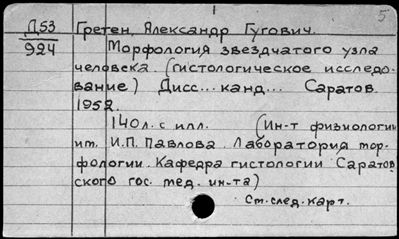 5
Д53 Гретен, Александр Гугович.
924 Морфология звездчатого узла
человека. (гистологическое исследо-
вание) Дисс... канд... Саратов
1952.
140л. с илл. (Ин-т физиологии
им. И.П. Павлова. Лаборатория мор-
фологии. Кафедра гистологии Саратов
ского гос. мед. ин-та)
См. след. карт.